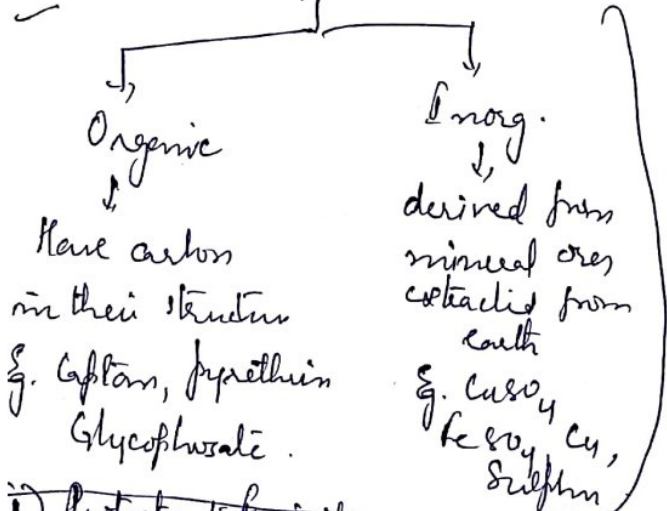 Organic
Have carbon
in their structure
Eg. Captan, pyrethrin
Glycophosate.
Inorg.
derived from
mineral ores
extracted from
earth
Eg. CuSO4
FeSO4, Cu,
Sulphur